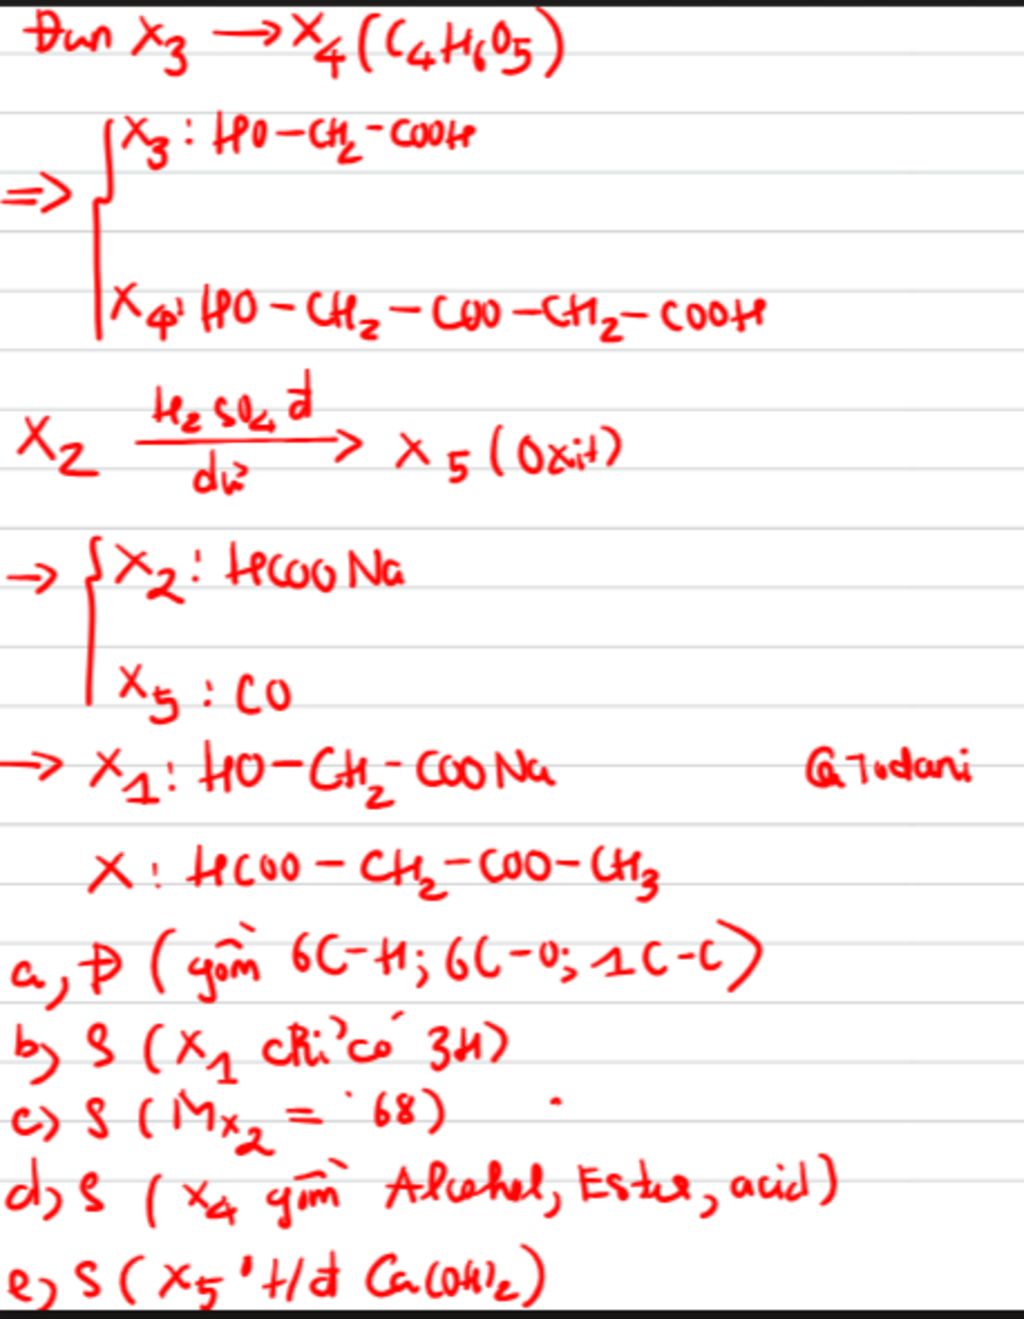 Đun X₃ → X₄ (C₄H₆O₅)
X₃ : HO-CH₂-COOH
=>
X₄ : HO-CH₂-COO-CH₂-COOH
X₂ H₂SO₄ đ dư → X₅ (Oxit)
→ X₂ : HCOONa
X₅ : CO
→ X₁ : HO-CH₂-COONa @Todani
X : HCOO-CH₂-COO-CH₃
a, Đ (gồm 6C-H; 6C-O; 1C-C)
b) S (X₁ chỉ có 3H)
c) S (Mx₂ = 68)
d) S (X₄ gồm Alcohol, Ester, acid)
e) S (X₅ ko t/d Ca(OH)₂)